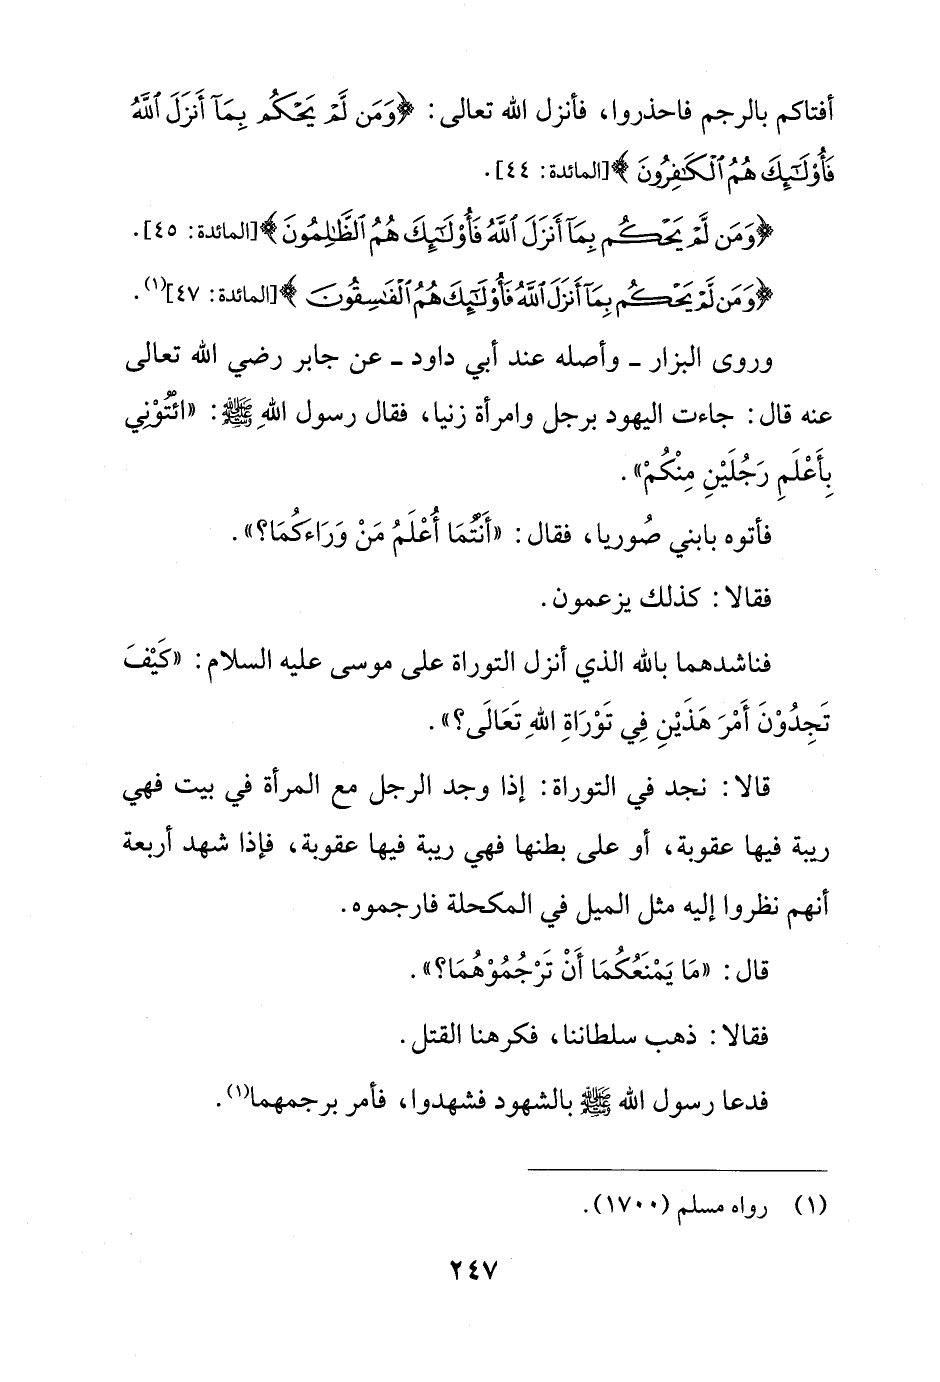 أفتاكم بالرجم فاحذروا، فأنزل الله تعالى: ﴿وَمَن لَّمْ يَحْكُم بِمَآ أَنزَلَ ٱللَّهُ
فَأُو۟لَـٰٓئِكَ هُمُ ٱلْكَـٰفِرُونَ﴾ [المائدة: ٤٤].
﴿وَمَن لَّمْ يَحْكُم بِمَآ أَنزَلَ ٱللَّهُ فَأُو۟لَـٰٓئِكَ هُمُ ٱلظَّـٰلِمُونَ﴾ [المائدة: ٤٥].
﴿وَمَن لَّمْ يَحْكُم بِمَآ أَنزَلَ ٱللَّهُ فَأُو۟لَـٰٓئِكَ هُمُ ٱلْفَـٰسِقُونَ﴾ [المائدة: ٤٧](١).
وروى البزار ـ وأصله عند أبي داود ـ عن جابر رضي الله تعالى
عنه قال: جاءت اليهود برجل وامرأة زنيا، فقال رسول اللهِ ﷺ: «ائْتُوْنِي
بِأَعْلَمِ رَجُلَيْنِ مِنْكُمْ».
فأتوه بابني صُوريا، فقال: «أَنْتُمَا أَعْلَمُ مَنْ وَرَاءَكُمَا؟».
فقالا: كذلك يزعمون.
فناشدهما بالله الذي أنزل التوراة على موسى عليه السلام: «كَيْفَ
تَجِدُوْنَ أَمْرَ هَذَيْنِ فِي تَوْرَاةِ اللهِ تَعَالَى؟».
قالا: نجد في التوراة: إذا وجد الرجل مع المرأة في بيت فهي
ريبة فيها عقوبة، أو على بطنها فهي ريبة فيها عقوبة، فإذا شهد أربعة
أنهم نظروا إليه مثل الميل في المكحلة فارجموه.
قال: «مَا يَمْنَعُكُمَا أَنْ تَرْجُمُوْهُمَا؟».
فقالا: ذهب سلطاننا، فكرهنا القتل.
فدعا رسول الله ﷺ بالشهود فشهدوا، فأمر برجمهما(١).
(١) رواه مسلم (١٧٠٠).
٢٤٧